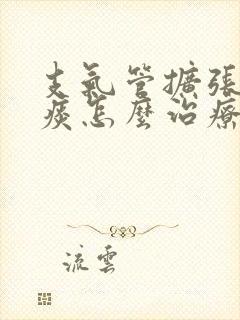 支氣管擴張
痰怎麼治療
流雲